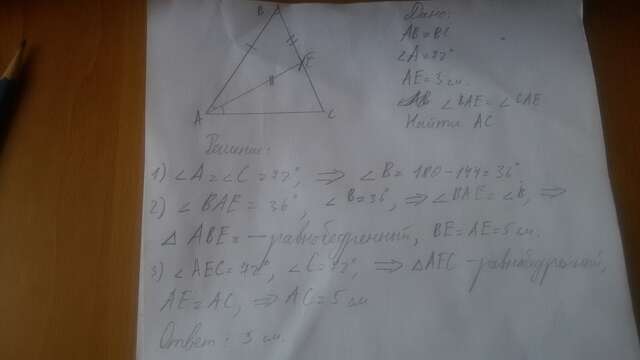 B
E
A
C
Дано:
AB=BC
∠A=72°
AE=5 см.
∠BAE=∠CAE
Найти AC
Решение:
1) ∠A=∠C=72°, ⇒ ∠B=180-144=36°
2) ∠BAE=36°, ∠B=36°, ⇒ ∠BAE=∠B, ⇒
△ABE= - равнобедренный, BE=AE=5 см.
3) ∠AEC=72°, ∠C=72°, ⇒ △AEC - равнобедренный,
AE=AC, ⇒ AC=5 см
Ответ: 5 см.